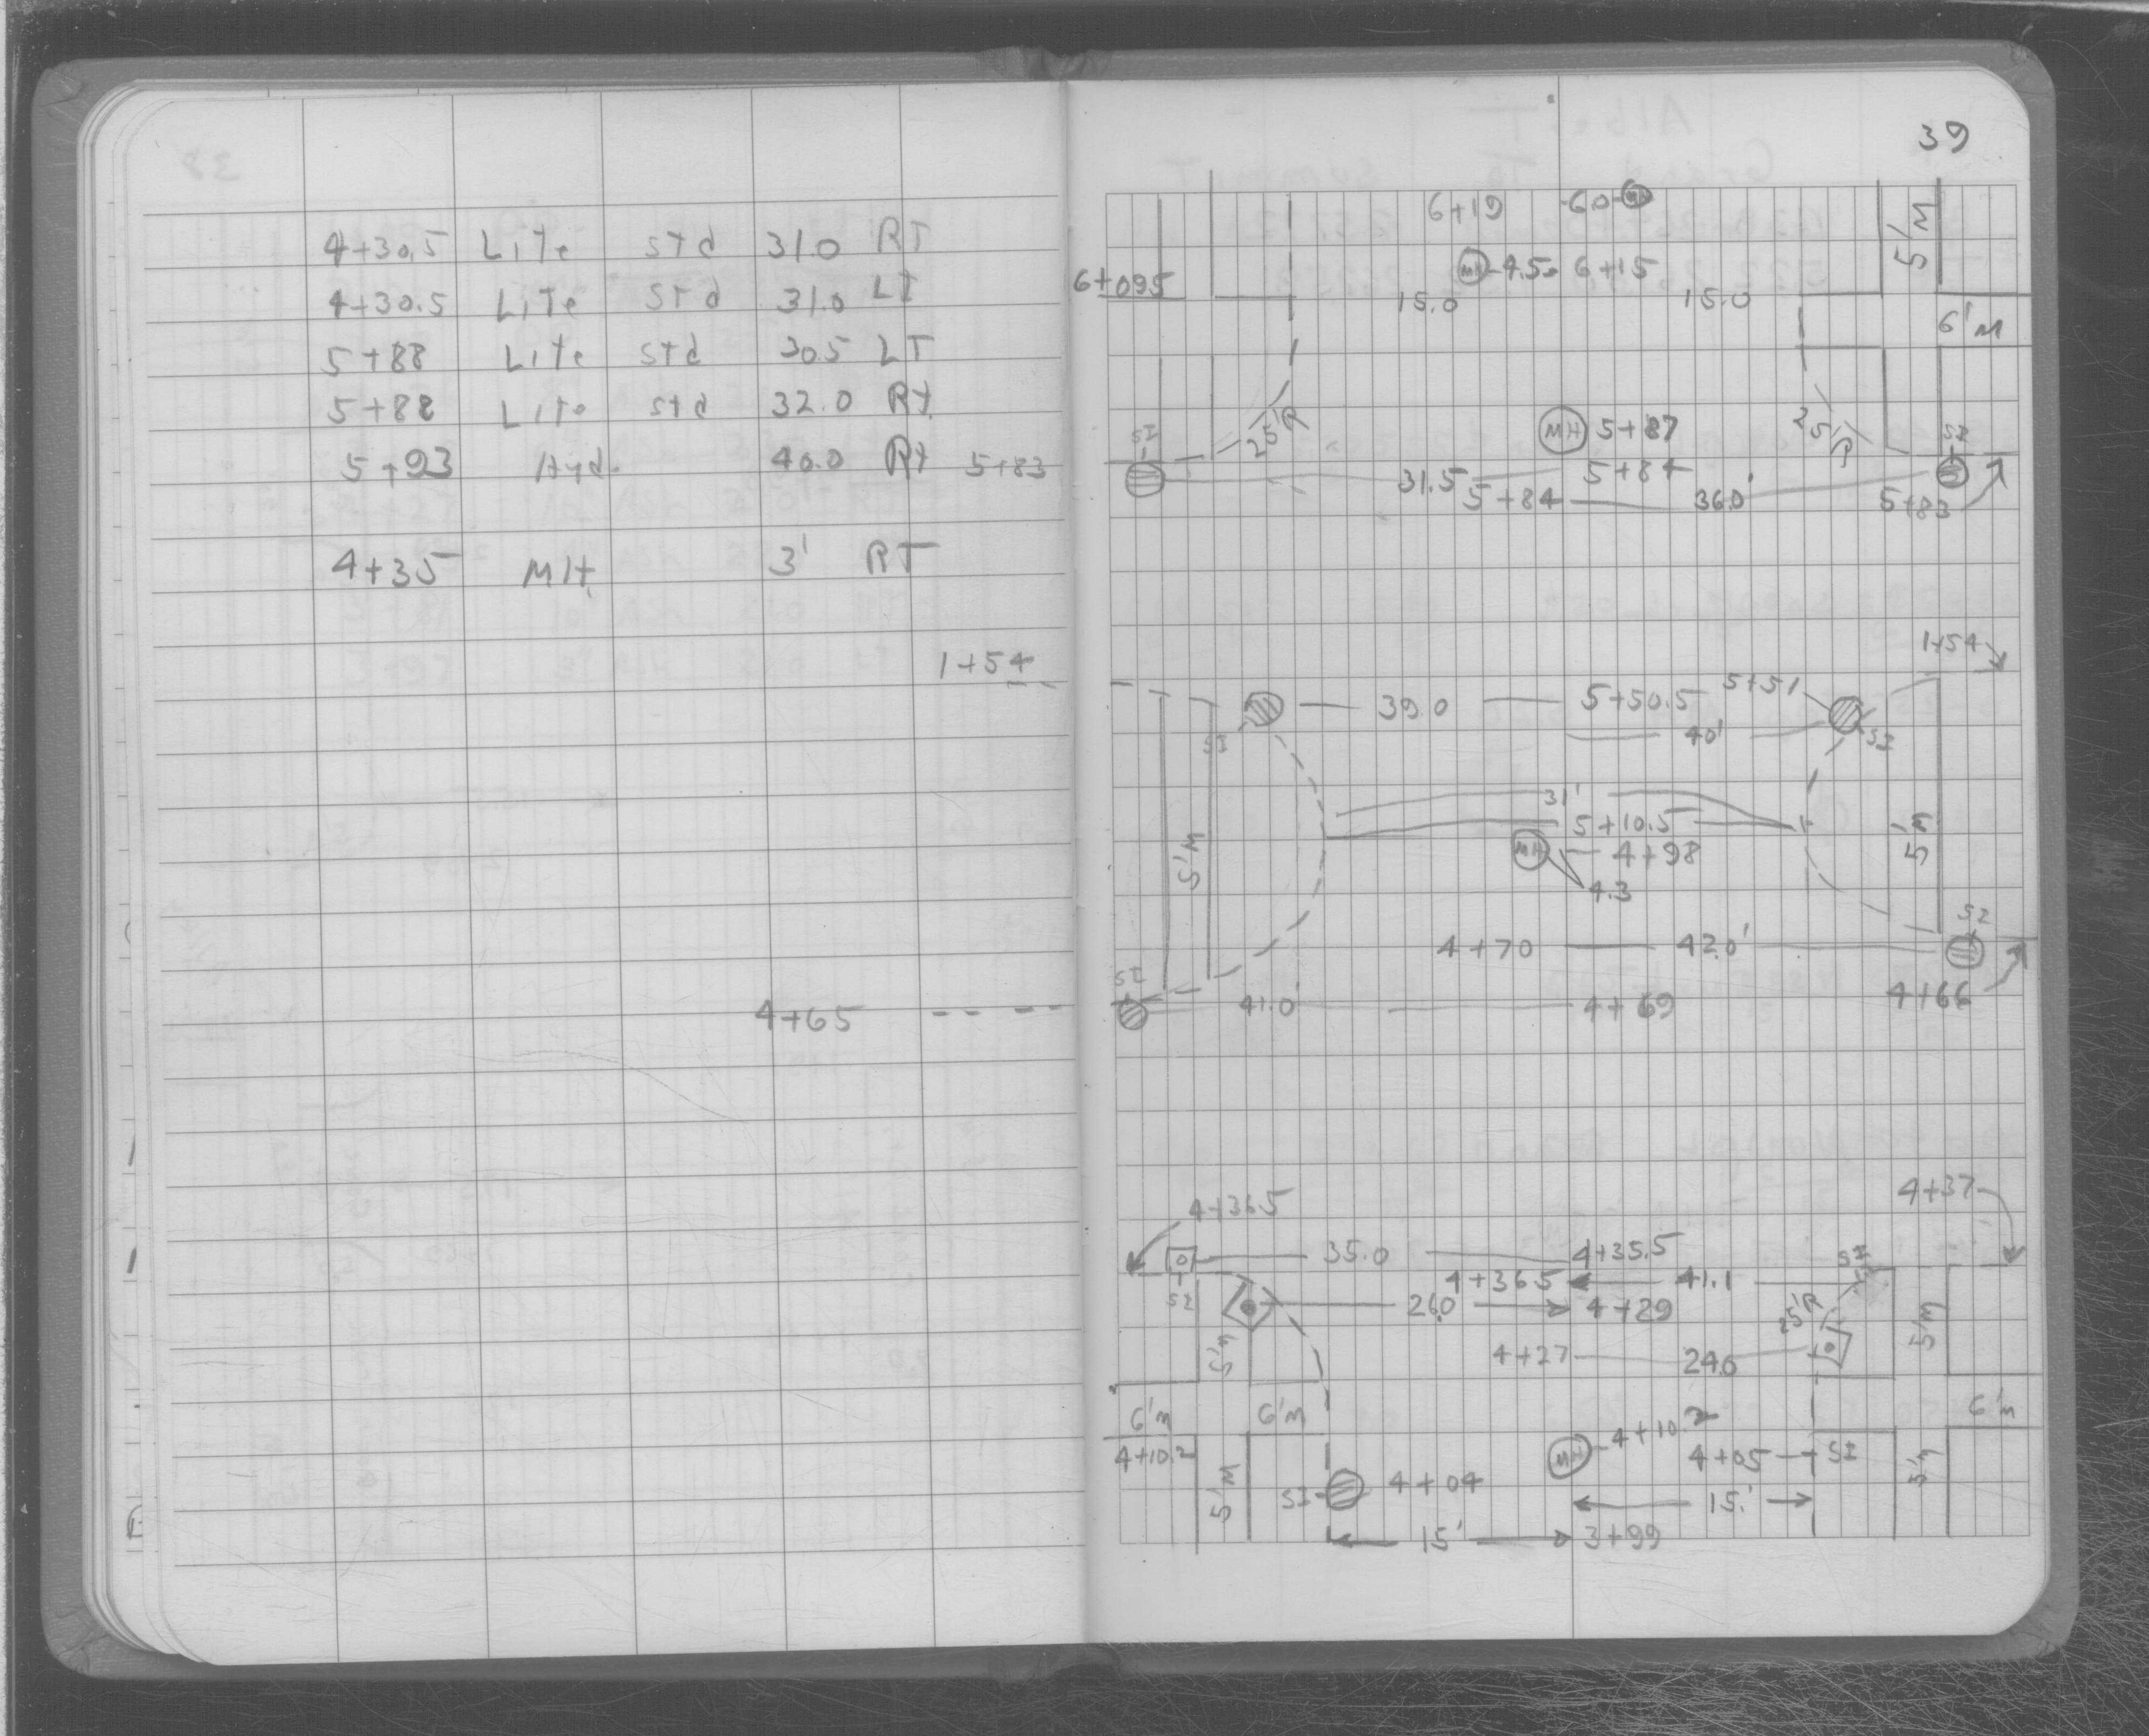 4+30.5 Lite std 31.0 RT
4+30.5 Lite std 31.0 LT
5+88 Lite std 30.5 LT
5+88 Lite std 32.0 Rt
5+93 Hyd. 40.0 Rt 5+83
4+35 MH 3' RT
1+54
4+65
39
6+19 6.0 MH
5'M
MH 4.5 6+15
6+09.5
15.0 15.0
6'M
SI 25'R MH 5+87 25'R SI
31.5 5+84
5+84 36.0' 5+83
1+54
39.0 5+50.5 5+51
SI 40' SI
31'
5+10.5
5'M MH 4+98 5'M
4.3
SI
4+70 42.0'
SI
41.0' 4+69 4+66
4+37
4+36.5
35.0 4+35.5 SI
4+36.5 41.1
SI 26.0 4+29 25'R
5'M 4+27 24.6 5'M
6'M 6'M 6'M
4+10.2 MH 4+10.2
4+05 SI
5'M SI 4+04 5'M
15'
15' 3+99